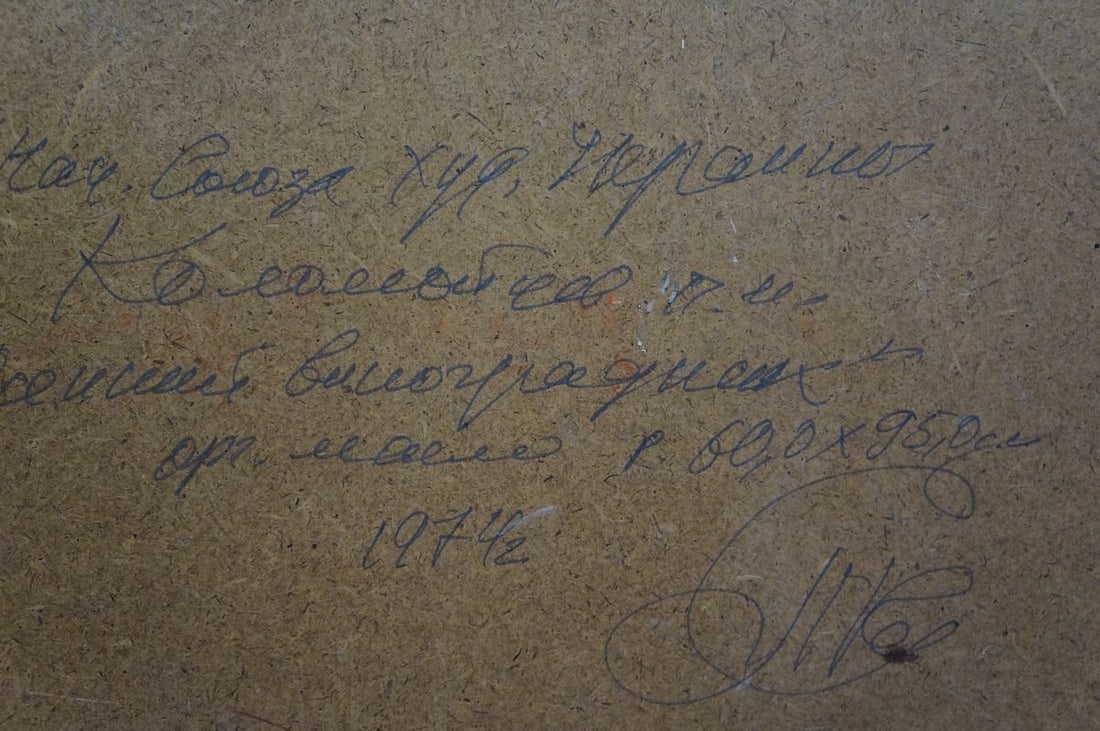 Нац. Союза худ. Украины
Коломойцев П. Н.
Осенний виноградник
орг. масло р. 60,0х95,0см
1974г